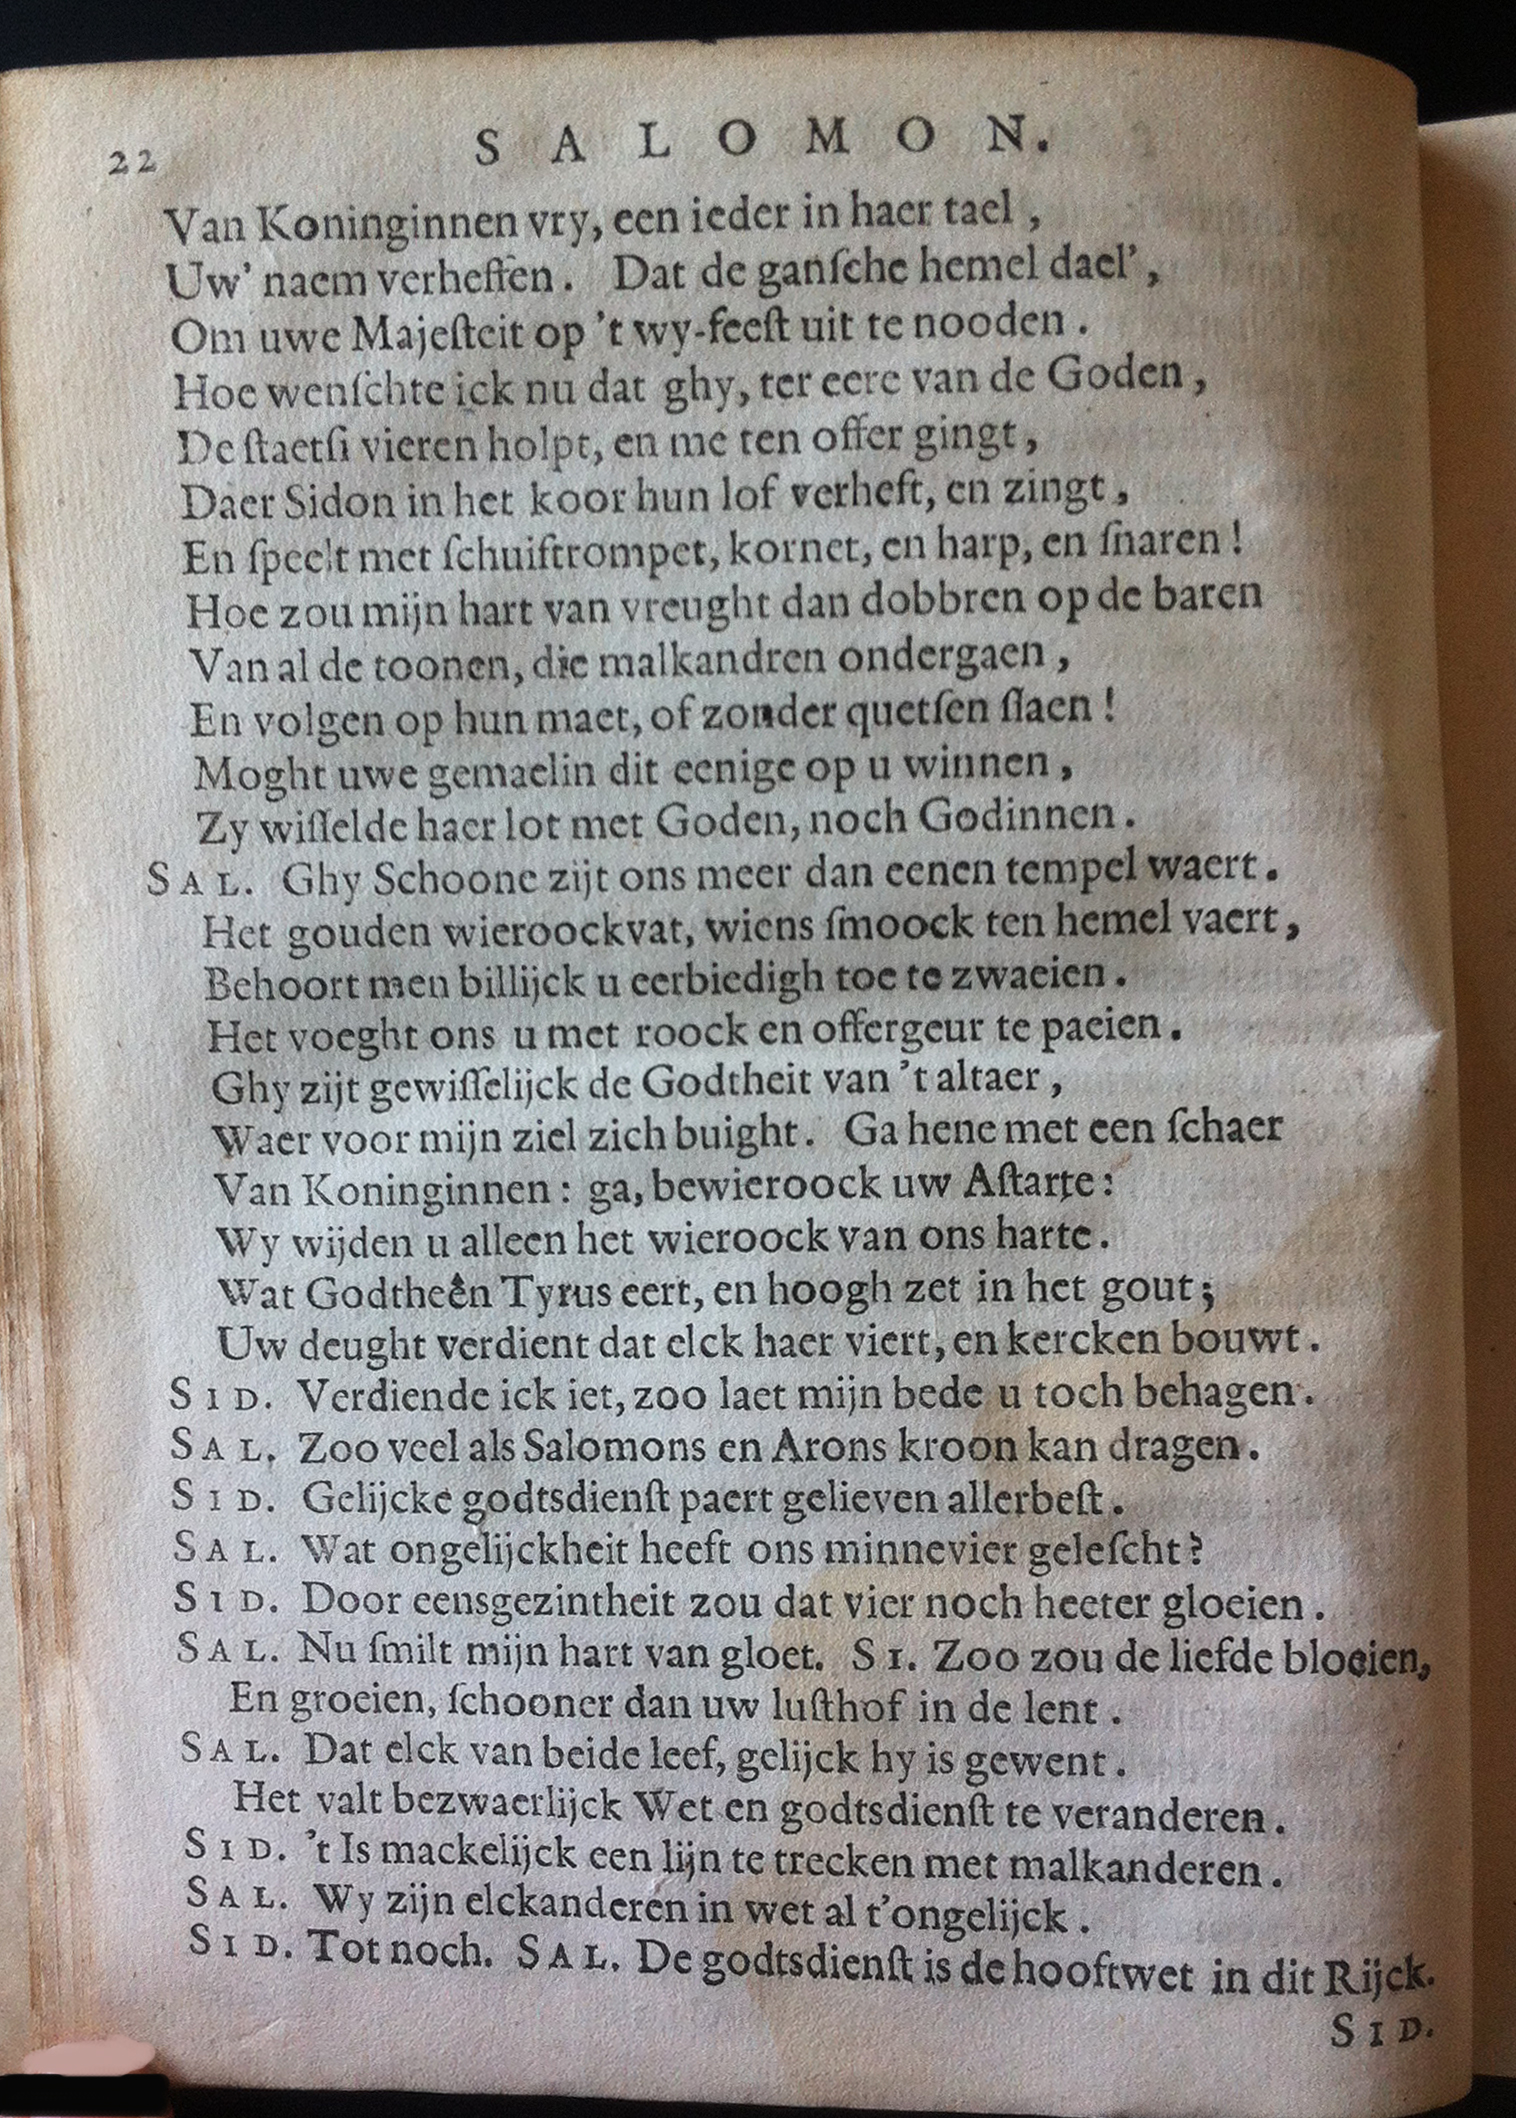 22 SALOMON.
Van Koninginnen vry, een ieder in haer tael,
Uw' naem verheffen. Dat de ganſche hemel dael',
Om uwe Majeſteit op 't wy-feeſt uit te nooden.
Hoe wenſchte ick nu dat ghy, ter eere van de Goden,
De ſtaetſi vieren holpt, en me ten offer gingt,
Daer Sidon in het koor hun lof verheft, en zingt,
En ſpeelt met ſchuiftrompet, kornet, en harp, en ſnaren!
Hoe zou mijn hart van vreught dan dobbren op de baren
Van al de toonen, die malkandren ondergaen,
En volgen op hun maet, of zonder quetſen ſlaen!
Moght uwe gemaelin dit eenige op u winnen,
Zy wiſſelde haer lot met Goden, noch Godinnen.
SAL. Ghy Schoone zijt ons meer dan eenen tempel waert.
Het gouden wieroockvat, wiens ſmoock ten hemel vaert,
Behoort men billijck u eerbiedigh toe te zwaeien.
Het voeght ons u met roock en offergeur te paeien.
Ghy zijt gewiſſelijck de Godtheit van 't altaer,
Waer voor mijn ziel zich buight. Ga hene met een ſchaer
Van Koninginnen: ga, bewieroock uw Aſtarte:
Wy wijden u alleen het wieroock van ons harte.
Wat Godtheên Tyrus eert, en hoogh zet in het gout;
Uw deught verdient dat elck haer viert, en kercken bouwt.
SID. Verdiende ick iet, zoo laet mijn bede u toch behagen.
SAL. Zoo veel als Salomons en Arons kroon kan dragen.
SID. Gelijcke godtsdienſt paert gelieven allerbeſt.
SAL. Wat ongelijckheit heeft ons minnevier geleſcht?
SID. Door eensgezintheit zou dat vier noch heeter gloeien.
SAL. Nu ſmilt mijn hart van gloet. SI. Zoo zou de liefde bloeien,
En groeien, ſchooner dan uw luſthof in de lent.
SAL. Dat elck van beide leef, gelijck hy is gewent.
Het valt bezwaerlijck Wet en godtsdienſt te veranderen.
SID. 't Is mackelijck een lijn te trecken met malkanderen.
SAL. Wy zijn elckanderen in wet al t'ongelijck.
SID. Tot noch. SAL. De godtsdienſt is de hooftwet in dit Rijck.
SID.